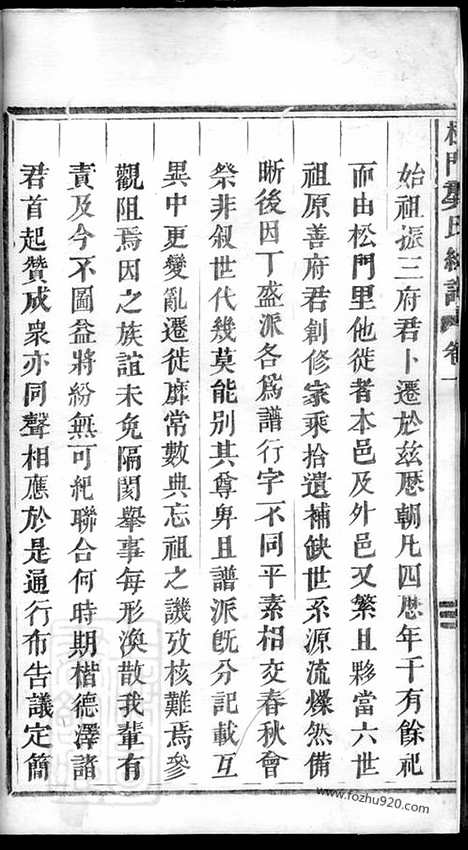 松門龔氏統譜 卷一
始祖振三府君卜遷於玆歷朝凡四歷年千有餘祀
而由松門里他徙者本邑及外邑又繁且夥當六世
祖原善府君創修家乘拾遺補缺世系源流燦然備
晰後因丁盛派各爲譜行字不同平素相交春秋會
祭非叙世代幾莫能别其尊卑且譜派旣分記載互
異中更變亂遷徙靡常數典忘祖之譏攷核難焉參
觀阻焉因之族誼未免隔閡舉事每形渙散我輩有
責及今不圖益將紛無可紀聯合何時期楷德澤諸
君首起贊成衆亦同聲相應於是通行布告議定簡
www.fozhu920.com